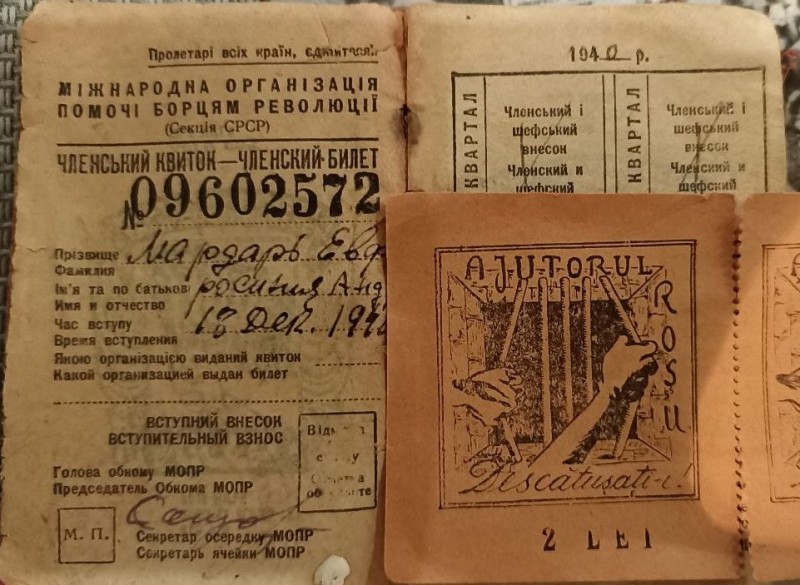 Пролетарі всіх країн, єднайтеся!
МІЖНАРОДНА ОРГАНІЗАЦІЯ
ПОМОЧІ БОРЦЯМ РЕВОЛЮЦІЇ
(Секція СРСР)
ЧЛЕНСЬКИЙ КВИТОК—ЧЛЕНСКИЙ БИЛЕТ
№ 09602572
Прізвище Мардарь Евф
Фамилия
Ім'я та по батькові росиния Анд
Имя и отчество
Час вступу 18 Дек. 1940
Время вступления
Якою організацією виданий квиток
Какой организацией выдан билет
ВСТУПНИЙ ВНЕСОК
ВСТУПИТЕЛЬНЫЙ ВЗНОС
Голова обкому МОПР
Председатель Обкома МОПР
М. П.
Секретар осередку МОПР
Секретарь ячейки МОПР
1940 р.
КВАРТАЛ
Членський і
шефський
внесок
Членский и
шефский
КВАРТАЛ
Членський і
шефський
внесок
Членский и
шефский
AJUTORUL
ROSU
Descătușați-i!
2 LEI